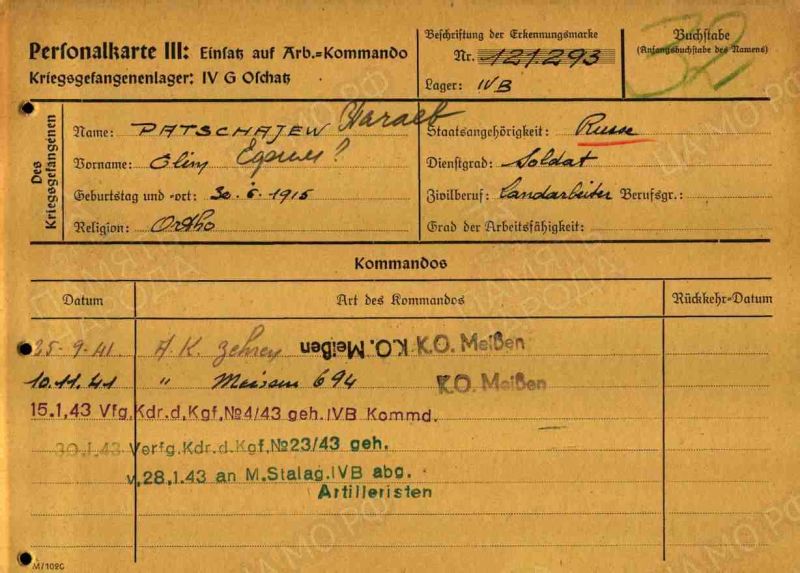 Personalkarte III: Einsatz auf Arb.=Kommando
Kriegsgefangenenlager: IV G Oschatz
Beschriftung der Erkennungsmarke
Nr. 121293
Lager: IVB
32
Buchstabe
(Anfangsbuchstabe des Namens)
Des Kriegsgefangenen
Name: PATSCHAJEW
Vorname: Olim
Geburtstag und -ort: 30. 6. 1915
Religion: Ortho
Staatsangehörigkeit: Russe
Dienstgrad: Soldat
Zivilberuf: Landarbeiter Berufsgr.:
Grad der Arbeitsfähigkeit:
Kommandos
Datum Art des Kommandos Rückkehr=Datum
25-9-41. A.K. Zehren K.O. Meißen K.O. Meißen
10.11.41 " Meissen 694 K.O. Meißen
15.1,43 Vfg.Kdr.d.Kgf,№4/43 geh. IVB Kommd.
30.1.43 Verfg.Kdr.d.Kgf,№23/43 geh.
v,28,1.43 an M.Stalag.IVB abg.
Artilleristen
M/1020
ЦА МО РФ
ПАМЯТЬ НАРОДА